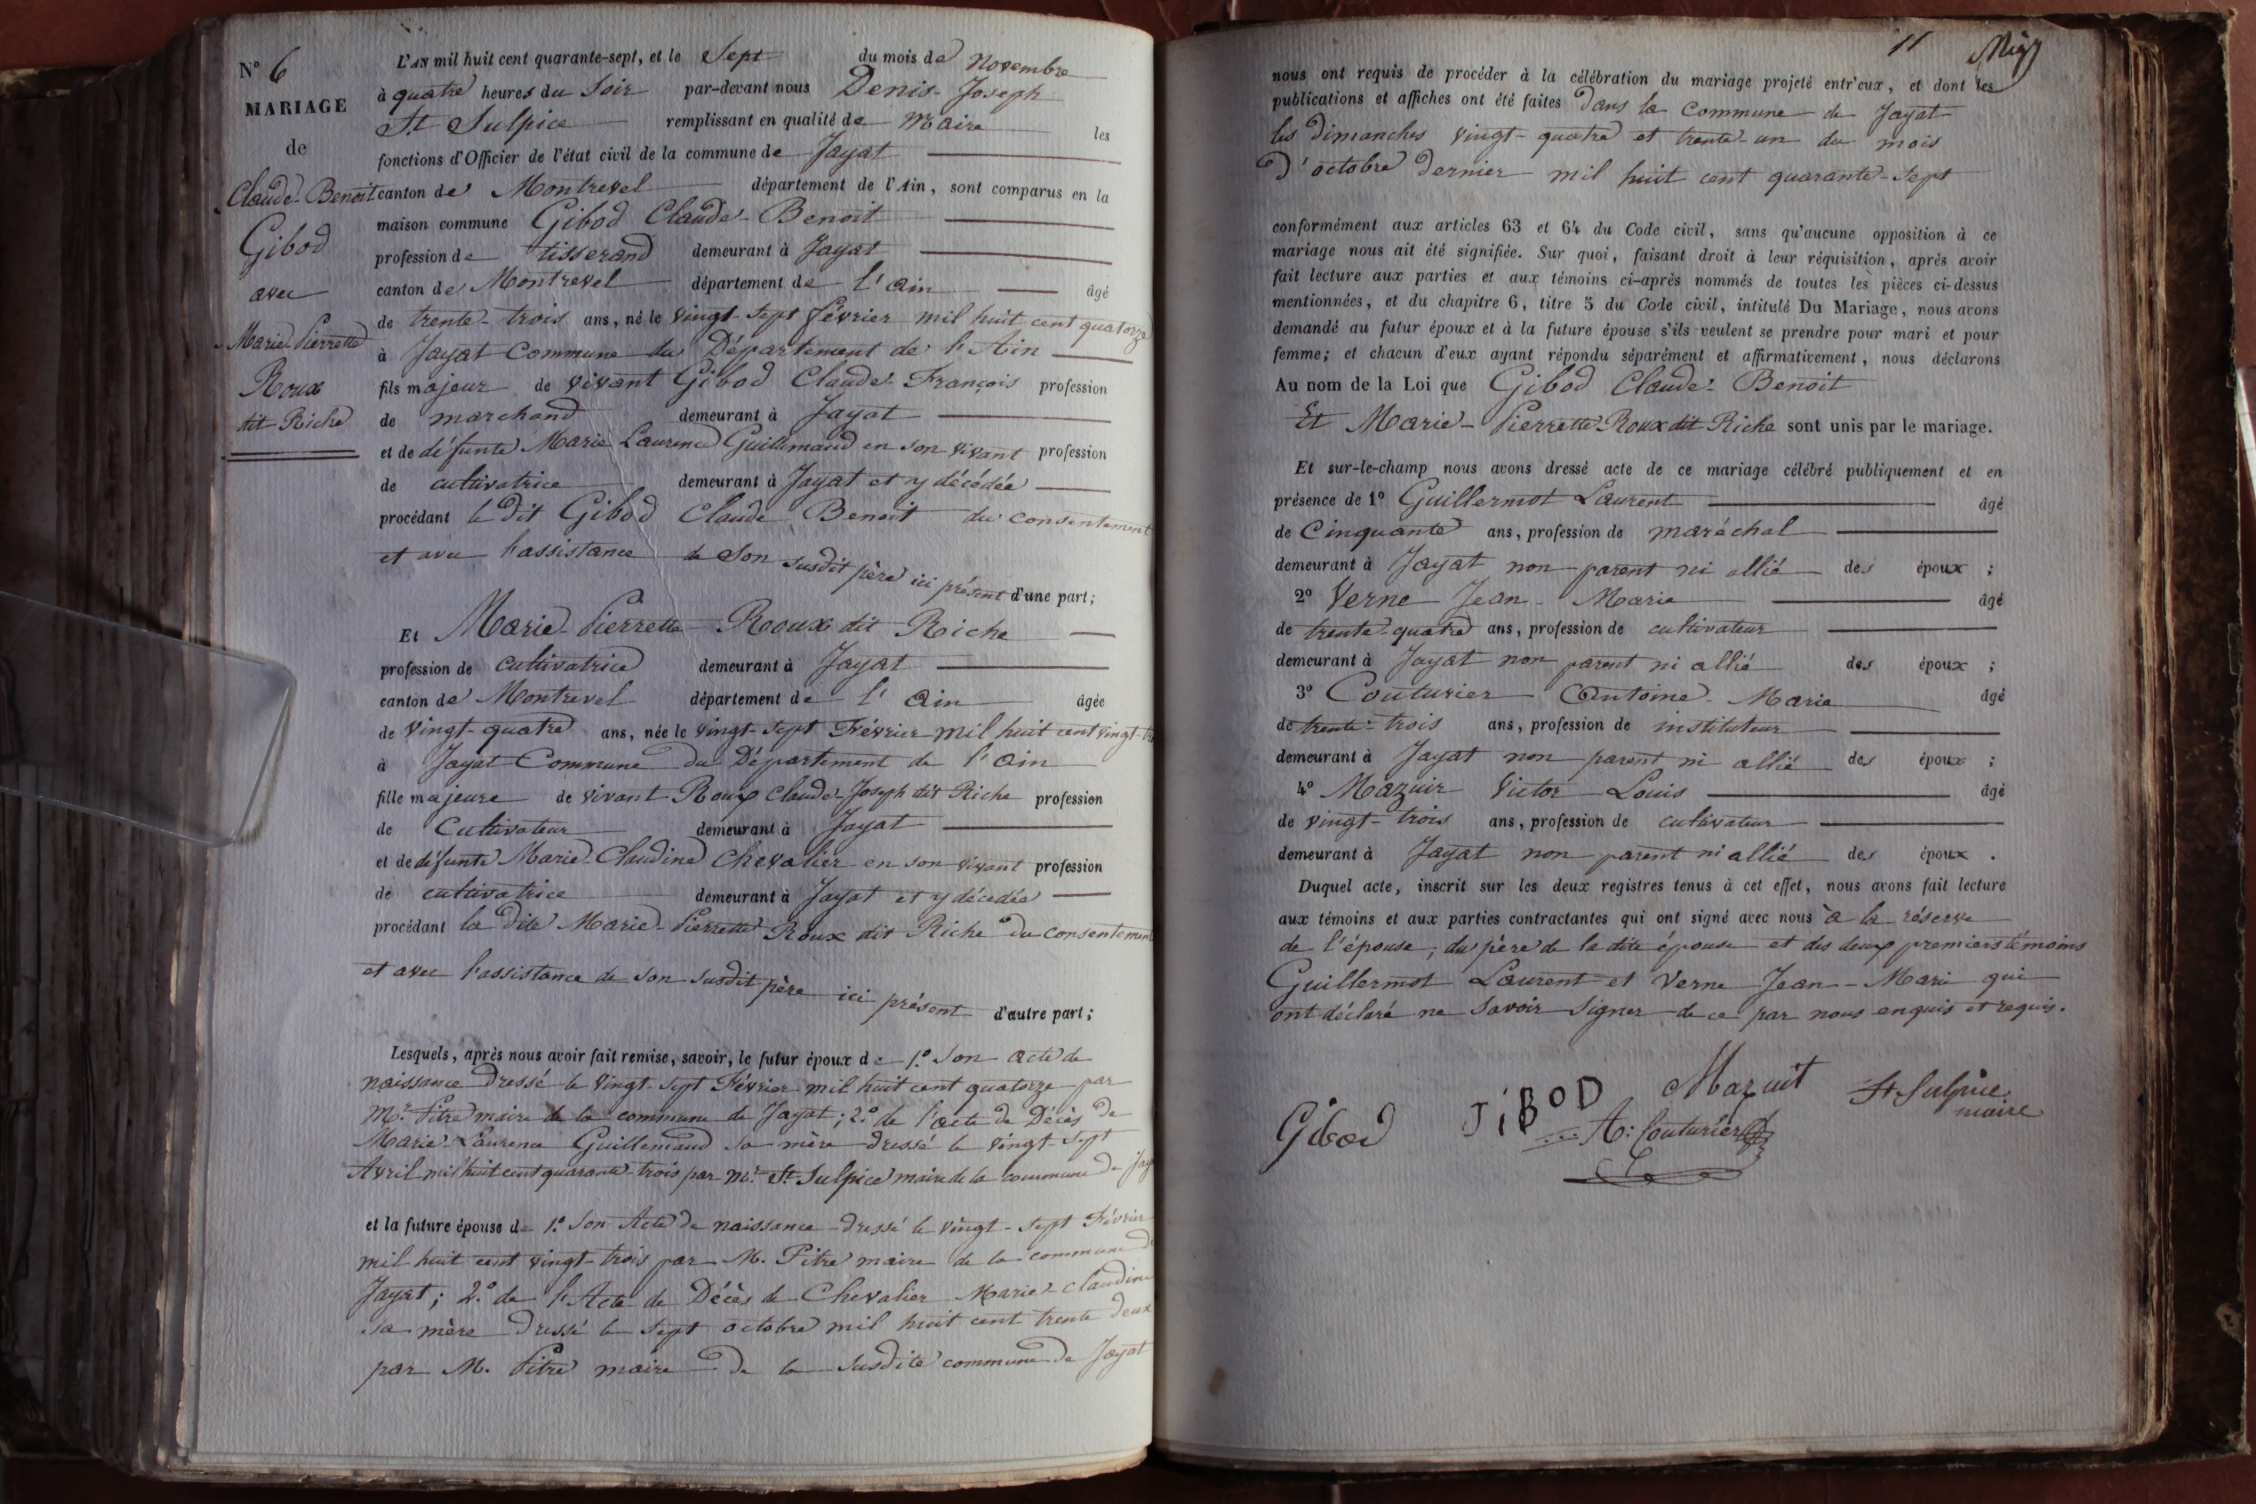 N° 6
MARIAGE
de
Claude-Benoit
Gibod
avec
Marie-Pierrette
Roux
dit Riche
L'AN mil huit cent quarante-sept, et le Sept du mois de Novembre
à quatre heures du Soir par-devant nous Denis-Joseph
St Sulpice remplissant en qualité de Maire les
fonctions d'Officier de l'état civil de la commune de Jayat
canton de Montrevel département de l'Ain, sont comparus en la
maison commune Gibod Claude-Benoit
profession de tisserand demeurant à Jayat
canton de Montrevel département de l'ain âgé
de trente-trois ans, né le vingt-sept février mil huit cent quatorze
à Jayat Commune du Département de l'Ain
fils majeur de vivant Gibod Claude-François profession
de marchand demeurant à Jayat
et de défunte Marie Laurence Guillemaud en son vivant profession
de cultivatrice demeurant à Jayat et y décédée
procédant le dit Gibod Claude Benoit du consentement
et avec l'assistance de Son susdit père ici présent d'une part;
Et Marie-Pierrette Roux dit Riche
profession de cultivatrice demeurant à Jayat
canton de Montrevel département de l'ain âgée
de vingt-quatre ans, née le vingt-sept Février mil huit cent vingt-
à Jayat Commune du Département de l'ain
fille majeure de vivant Roux Claude-Joseph dit Riche profession
de Cultivateur demeurant à Jayat
et de défunte Marie-Claudine Chevalier en son vivant profession
de cultivatrice demeurant à Jayat et y décédée
procédant la dite Marie-Pierrette Roux dit Riche du consentement
et avec l'assistance de son susdit père ici présent d'autre part;
Lesquels, après nous avoir fait remise, savoir, le futur époux de 1.° Son acte de
naissance dressé le vingt-sept Février mil huit cent quatorze par
Mr. Pitre maire de la commune de Jayat; 2.° de l'acte de Décès de
Marie-Laurence Guillemaud sa mère dressé le vingt-sept
Avril mil huit cent quarante-trois par Mr. St Sulpice maire de la commune de Jay
et la future épouse de 1.° Son Acte de naissance dressé le vingt-sept Février
mil huit cent vingt-trois par M. Pitre maire de la commune de
Jayat; 2.° de l'Acte de Décès de Chevalier Marie-Claudine
sa mère dressé le sept octobre mil huit cent trente deux
par M. Pitre maire de la susdite commune de Jayat
11
nous ont requis de procéder à la célébration du mariage projeté entr'eux, et dont les
publications et affiches ont été faites dans la commune de Jayat
les dimanches vingt-quatre et trente-un du mois
D'octobre dernier mil huit cent quarante-sept
conformément aux articles 63 et 64 du Code civil, sans qu'aucune opposition à ce
mariage nous ait été signifiée. Sur quoi, faisant droit à leur réquisition, après avoir
fait lecture aux parties et aux témoins ci-après nommés de toutes les pièces ci-dessus
mentionnées, et du chapitre 6, titre 5 du Code civil, intitulé Du Mariage, nous avons
demandé au futur époux et à la future épouse s'ils veulent se prendre pour mari et pour
femme; et chacun d'eux ayant répondu séparément et affirmativement, nous déclarons
Au nom de la Loi que Gibod Claude-Benoit
Et Marie-Pierrette Roux dit Riche sont unis par le mariage.
Et sur-le-champ nous avons dressé acte de ce mariage célébré publiquement et en
présence de 1° Guillermot Laurent âgé
de Cinquante ans, profession de maréchal
demeurant à Jayat non parent ni allié des époux ;
2° Verne Jean-Marie âgé
de trente-quatre ans, profession de cultivateur
demeurant à Jayat non parent ni allié des époux ;
3° Couturier Antoine-Marie âgé
de trente-trois ans, profession de instituteur
demeurant à Jayat non parent ni allié des époux ;
4° Mazuir Victor-Louis âgé
de vingt-trois ans, profession de cultivateur
demeurant à Jayat non parent ni allié des époux .
Duquel acte, inscrit sur les deux registres tenus à cet effet, nous avons fait lecture
aux témoins et aux parties contractantes qui ont signé avec nous à la réserve
de l'épouse, du père de la dite épouse et des deux premiers témoins
Guillermot Laurent et Verne Jean-Marie qui
ont déclaré ne savoir signer de ce par nous enquis et requis.
Gibod
JiBOD
Mazuit
A: Couturier
St Sulpice
maire